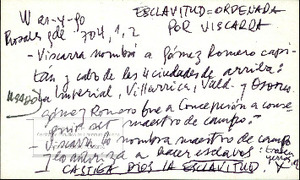 W-as-y-go ESCLAVITUD-ORDENADA
Rosales pde 704, 1, 2 POR VISCARRA
- Viscarra nombró a Gómez Romero capi-
tán y cabo de las 4 ciudades de arriba:
La Imperial, Villarrica, Vald- y Osorno.
y Romero fue a Concepción a conse
guir ser maestro de campo.-
- Viscarra lo nombra maestro de campo
y a hacer esclavos:
CASTIGA DIOS LA ESCLAVITUD. X